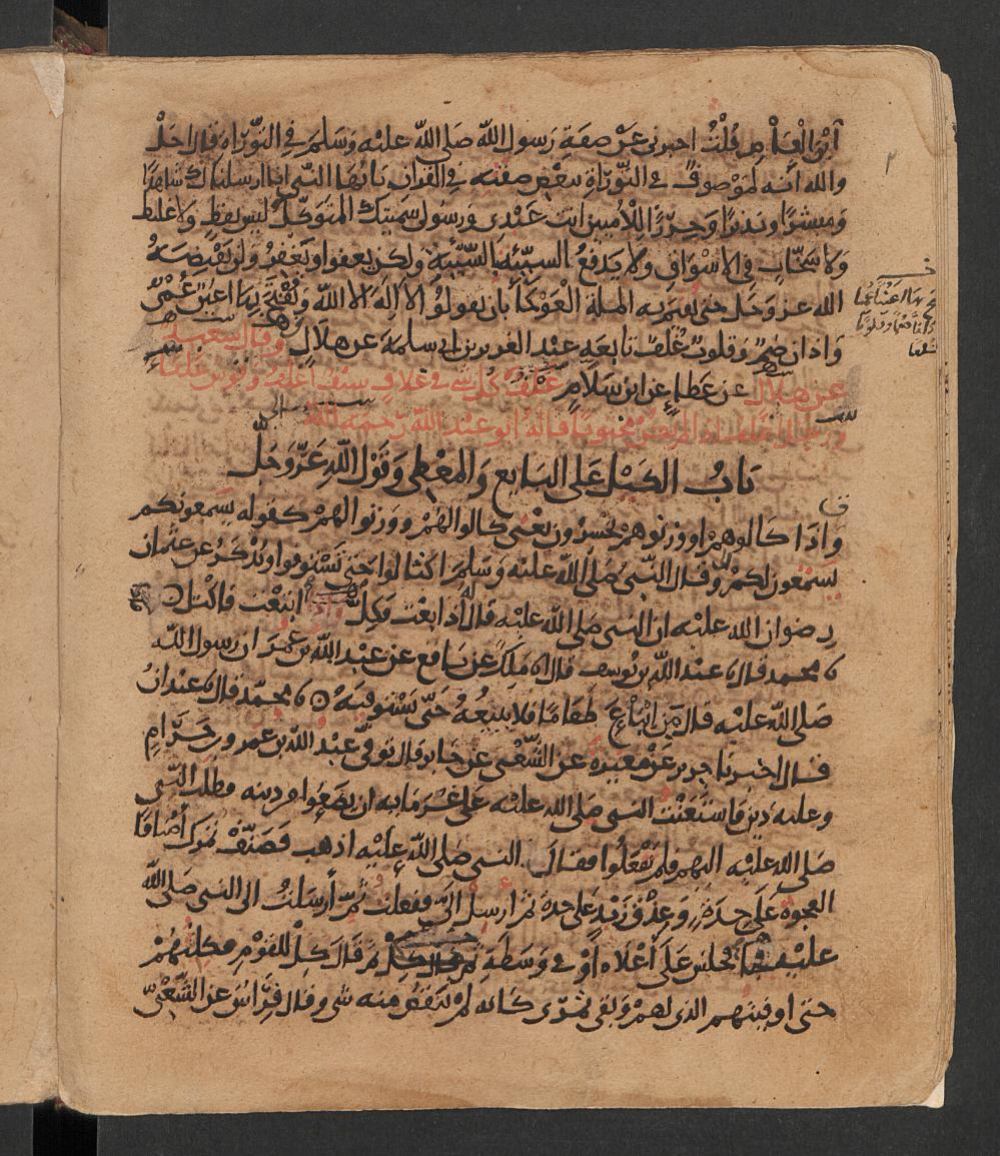 ابن العاص قُلْتُ اخبرنى عَنْ صفَةِ رَسول الله صَلى الله عليْه وَسَلمَ فِي التَّوْرَاه قال اجَلْ
والله انه لموْصوفٌ في التَّوْرَاةِ ببَعْضِ صفته في القران يا ايها النَّبى انا ارسلناك شاهدًا
وَمبشرًا ونذيرًا وَحِرْزًا للأميين انت عَبْدى وَرسُولى سميتك المتوكل ليس بفظٍ ولا غليظ
ولا سَخَّابٍ فِي الاسْوَاقِ ولا يَدْفَعُ السيِّئَة بالسَّيِّئة ولكن يعفو او يَغْفِرُ وَلن يَقْبِضَهُ
الله عز وَجَل حتى يقيم به الملة العَوْجَآ بان يقولوُا لا اله الا الله وَيُفْتَحَ بها اعْيُنٌ عُمْىٌ
وَاذانٌ صُمٌّ وَقلوبٌ غُلْفٌ تابعه عبْد العزيز بن ابى سلمة عن هلالٍ وقال سعيد
عن هلالٍ عن عَطاءٍ عن ابن سَلامٍ غلْفٌ كُل شى في غلاف سيْفٌ اغلف وقوس غلفا
ورجل اغلف اذا لم يكن مختونا قاله ابو عبْد الله رَحمه الله
بَابُ الكَيْل عَلى البَايع وَالمعْطى وَقَوْلِ اللهِ عَزَّ وَجَلَّ
وَاذا كَالوهُمْ او وَزَنوهُمْ يُخسرُون يَعْنى كالوا لهُمْ ووَزنوا لهُمْ كقوله يسمعونكم
يسْمَعُون لكمْ وَقال النَّبىُّ صَلى الله عليْه وَسَلم اكتالوا حتى تَسْتوفوا ويُذكرُ عن عثمان
رضوان الله عليْه ان النبى صَلى الله عليْه قال اذا بعْت فكِلْ واذا ابتَعْت فاكْتلْ
محمد قال عبْد الله بن يُوسف قال مَلك عن نافع عن عبد الله بن عمَرَ ان رسول الله
صَلى اللهُ عليْه قال مَن ابْتاعَ طَعَامًا فلا يَبيعُهُ حَتَّى يَسْتوفيَهُ محمّد قال عبْدانُ
قال اخبرنا جرير عَنْ مُغيرة عن الشَّعْبى عن جَابر قال توفّى عبْد الله بن عمرو بن حَرَامٍ
وعليه دين فاستعَنْت النبى صلى الله عليْه عَلى غُرَمايه ان يضَعُوا من دينه فطلب النَّبى
صَلى الله عليْه اليهم فلم يَفْعَلوُا فقال النبى صَلى الله عليْه اذهب فصَنِّفْ تمرَك أصْنافًا
العجوةَ عَلى حِدَةٍ وَعِذْقَ زَيْدٍ عَلى حدة ثم ارسلْ الىّ ففعلتُ ثمّ أرسَلتُ الى النبى صَلى الله
عليْه فجآ فجَلسَ عَلى أعْلاه اوْ في وَسَطه ثم قال كِلْ للقَوْمِ فكلتهُمْ
حتى اوفيتهم الذى لهمْ وبقى تمْرى كَانه لم ينقُصْ منه شى وقال فِرَاسٌ عن الشَّعْبىّ
بها اعْيُنًا عُمْيًا
واذانًا صُمًّا وقلوبًا
غلفا